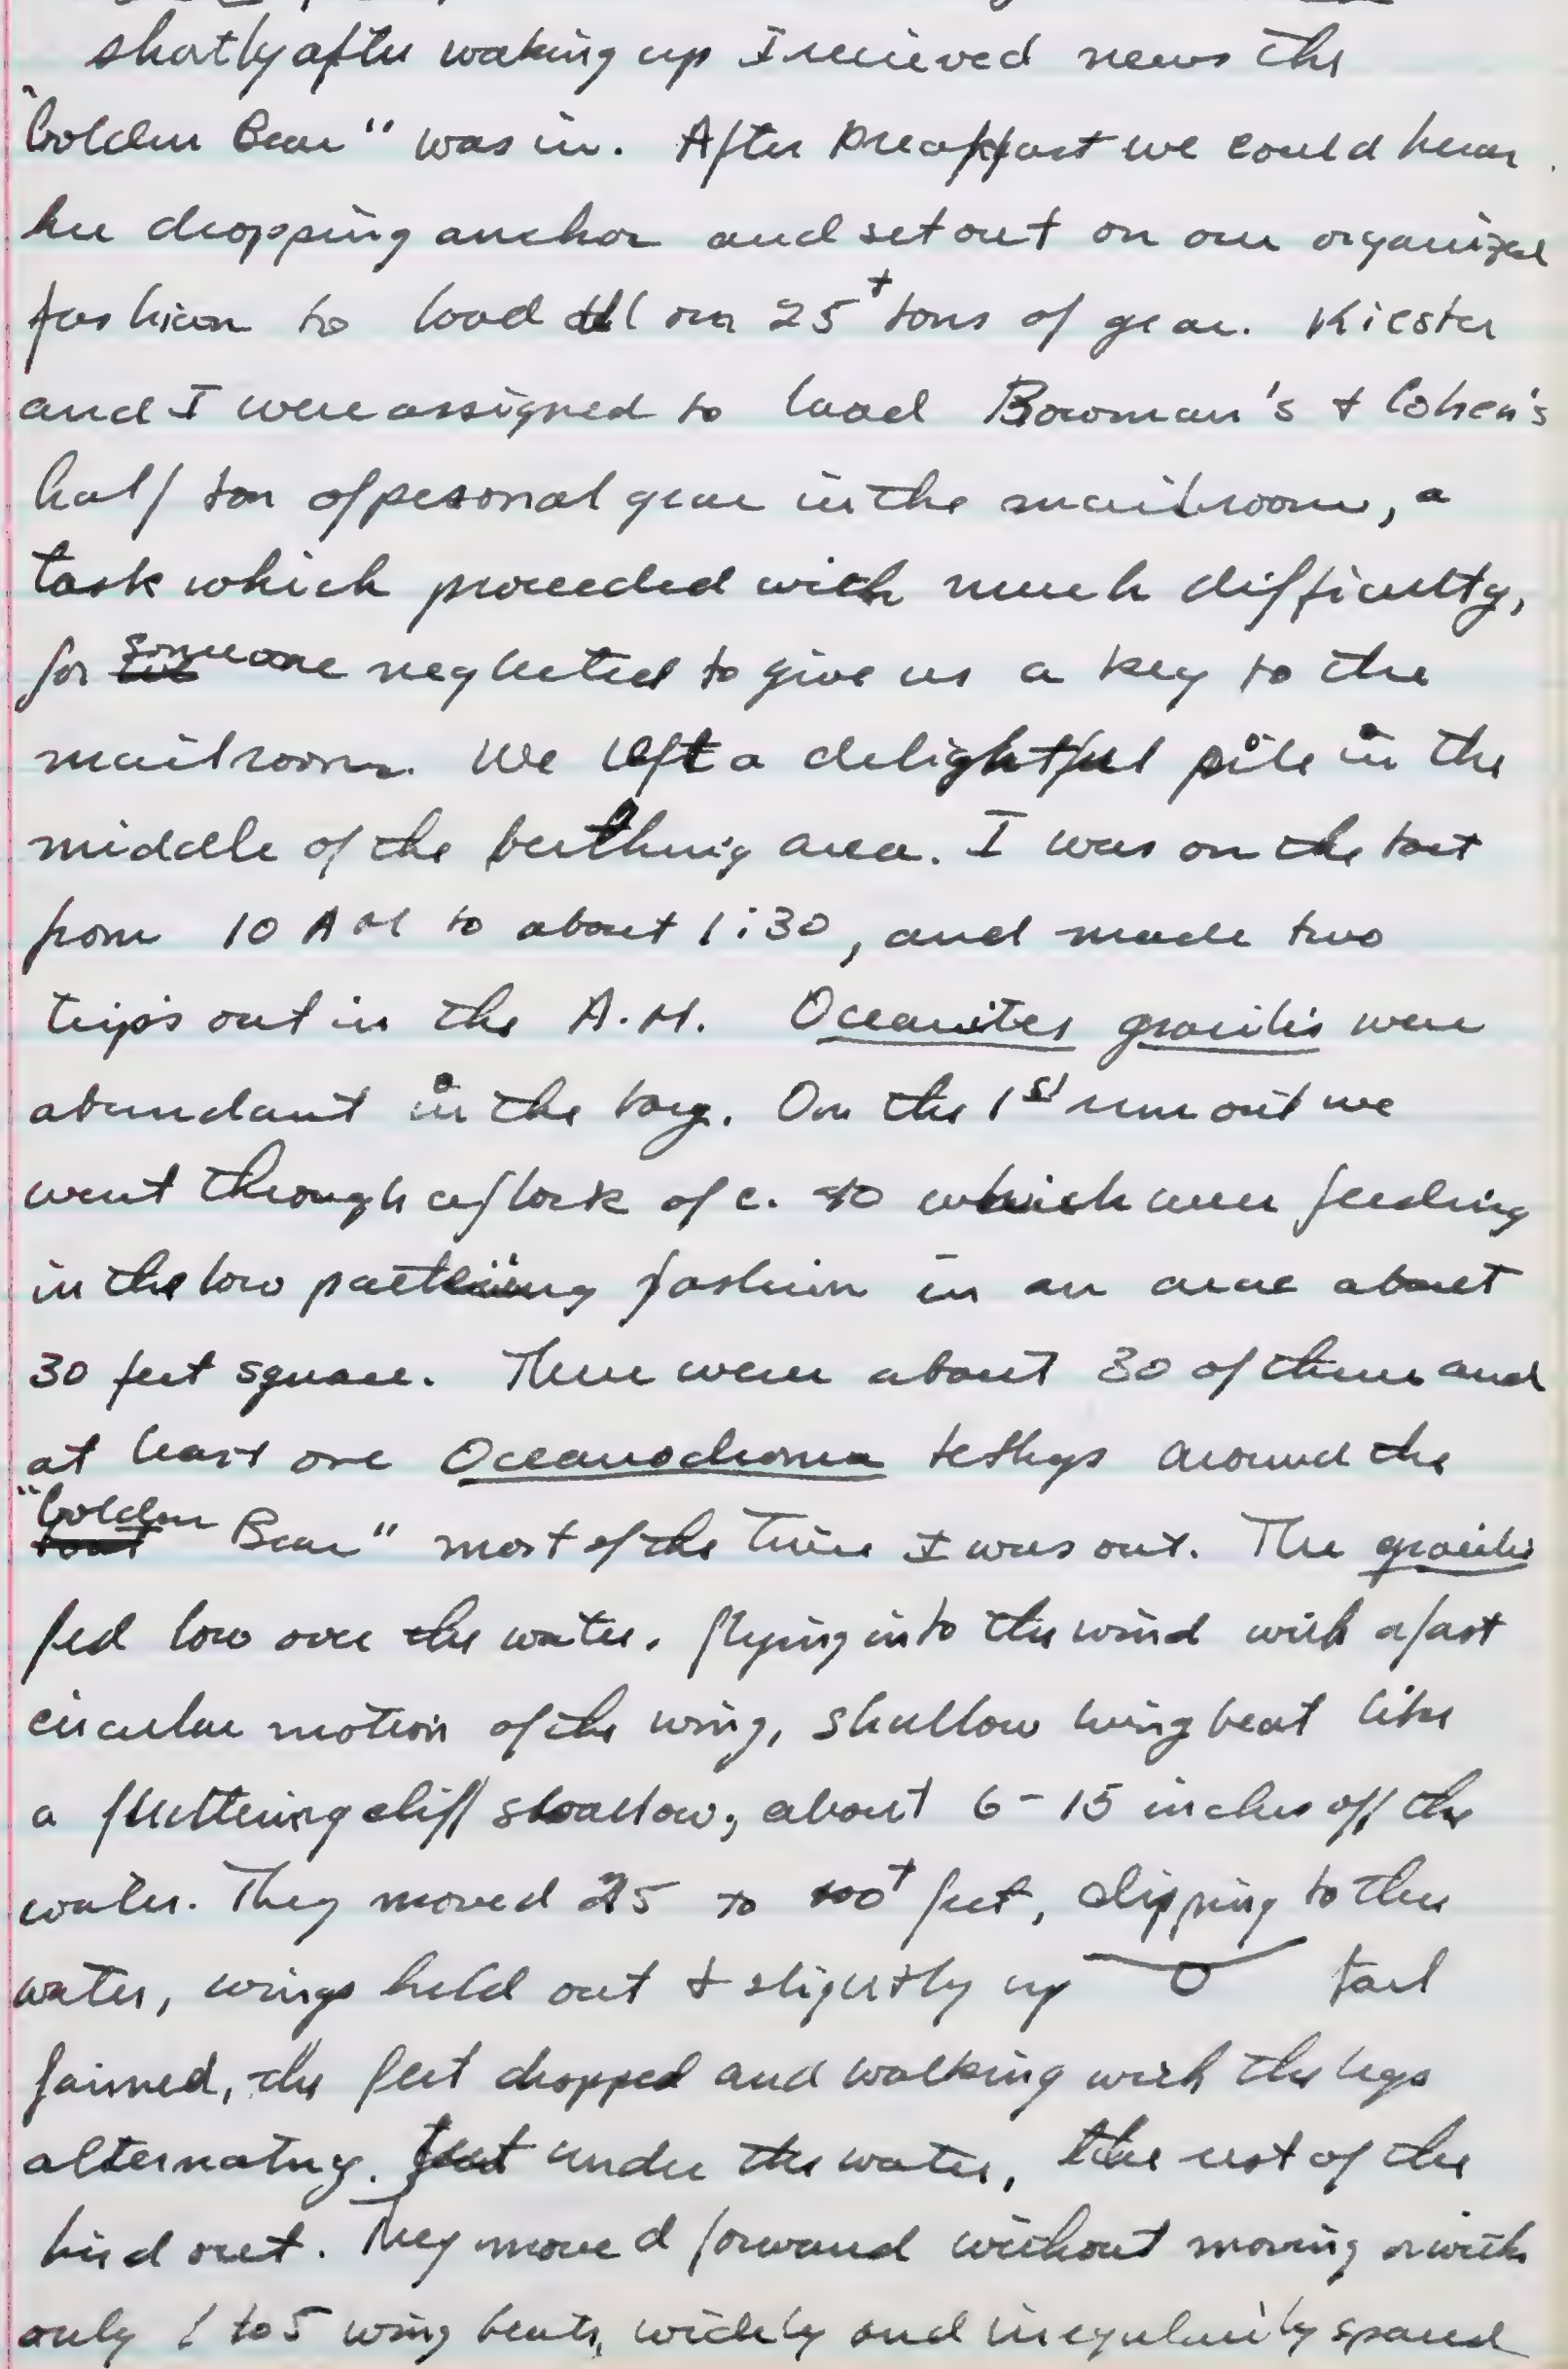 shortly after waking up I recieved news the
"Golden Bear" was in. After breakfast we could hear
her dropping anchor and set out on our organized
fashion to load all our 25+ tons of gear. Kiester
and I were assigned to load Bowman's + Cohen's
half ton of pesonal gear in the mailroom, a
task which proceeded with much difficulty,
for someone neglected to give us a key to the
mailroom. We left a delightful pile in the
middle of the berthing area. I was on the boat
from 10 AM to about 1:30, and made two
trips out in the A.M. Oceanites gracilis were
abundant in the bay. On the 1st run out we
went through a flock of c. 40 which were feeding
in the low pattering fashion in an area about
30 feet square. There were about 30 of them and
at least one Oceanodroma tethys around the
"Golden Bear" most of the time I was out. The gracilis
fed low over the water. flying into the wind with a fast
circular motion of the wing, shallow wing beat like
a fluttering cliff swallow, about 6-15 inches off the
water. They moved 25 to 100+ feet, dipping to the
water, wings held out + slightly up tail
fanned, the feet dropped and walking with the legs
alternatng. feet under the water, the rest of the
bird out. They moved forward without moving or with
only 1 to 5 wing beats, widely and irregularily spaced